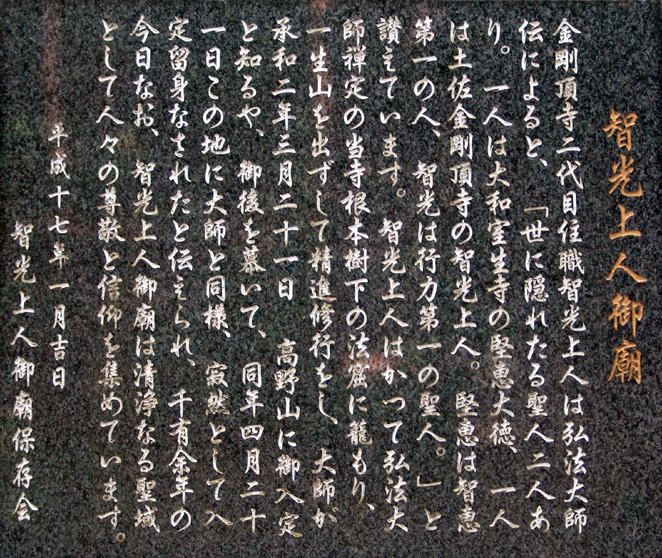 智光上人御廟
金剛頂寺二代目住職智光上人は弘法大師
伝によると、「世に隠れたる聖人二人あ
り。一人は大和室生寺の堅恵大徳、一人
は土佐金剛頂寺の智光上人。堅恵は智恵
第一の人、智光は行力第一の聖人。」と
讃えています。智光上人はかつて弘法大
師禅定の当寺根本樹下の法窟に籠もり、
一生山を出ずして精進修行をし、大師が
承和二年三月二十一日 高野山に御入定
と知るや、御後を慕いて、同年四月二十
一日この地に大師と同様、寂然として入
定留身なされたと伝えられ、千有余年の
今日なお、智光上人御廟は清浄なる聖域
として人々の尊敬と信仰を集めています。
平成十七年一月吉日
智光上人御廟保存会